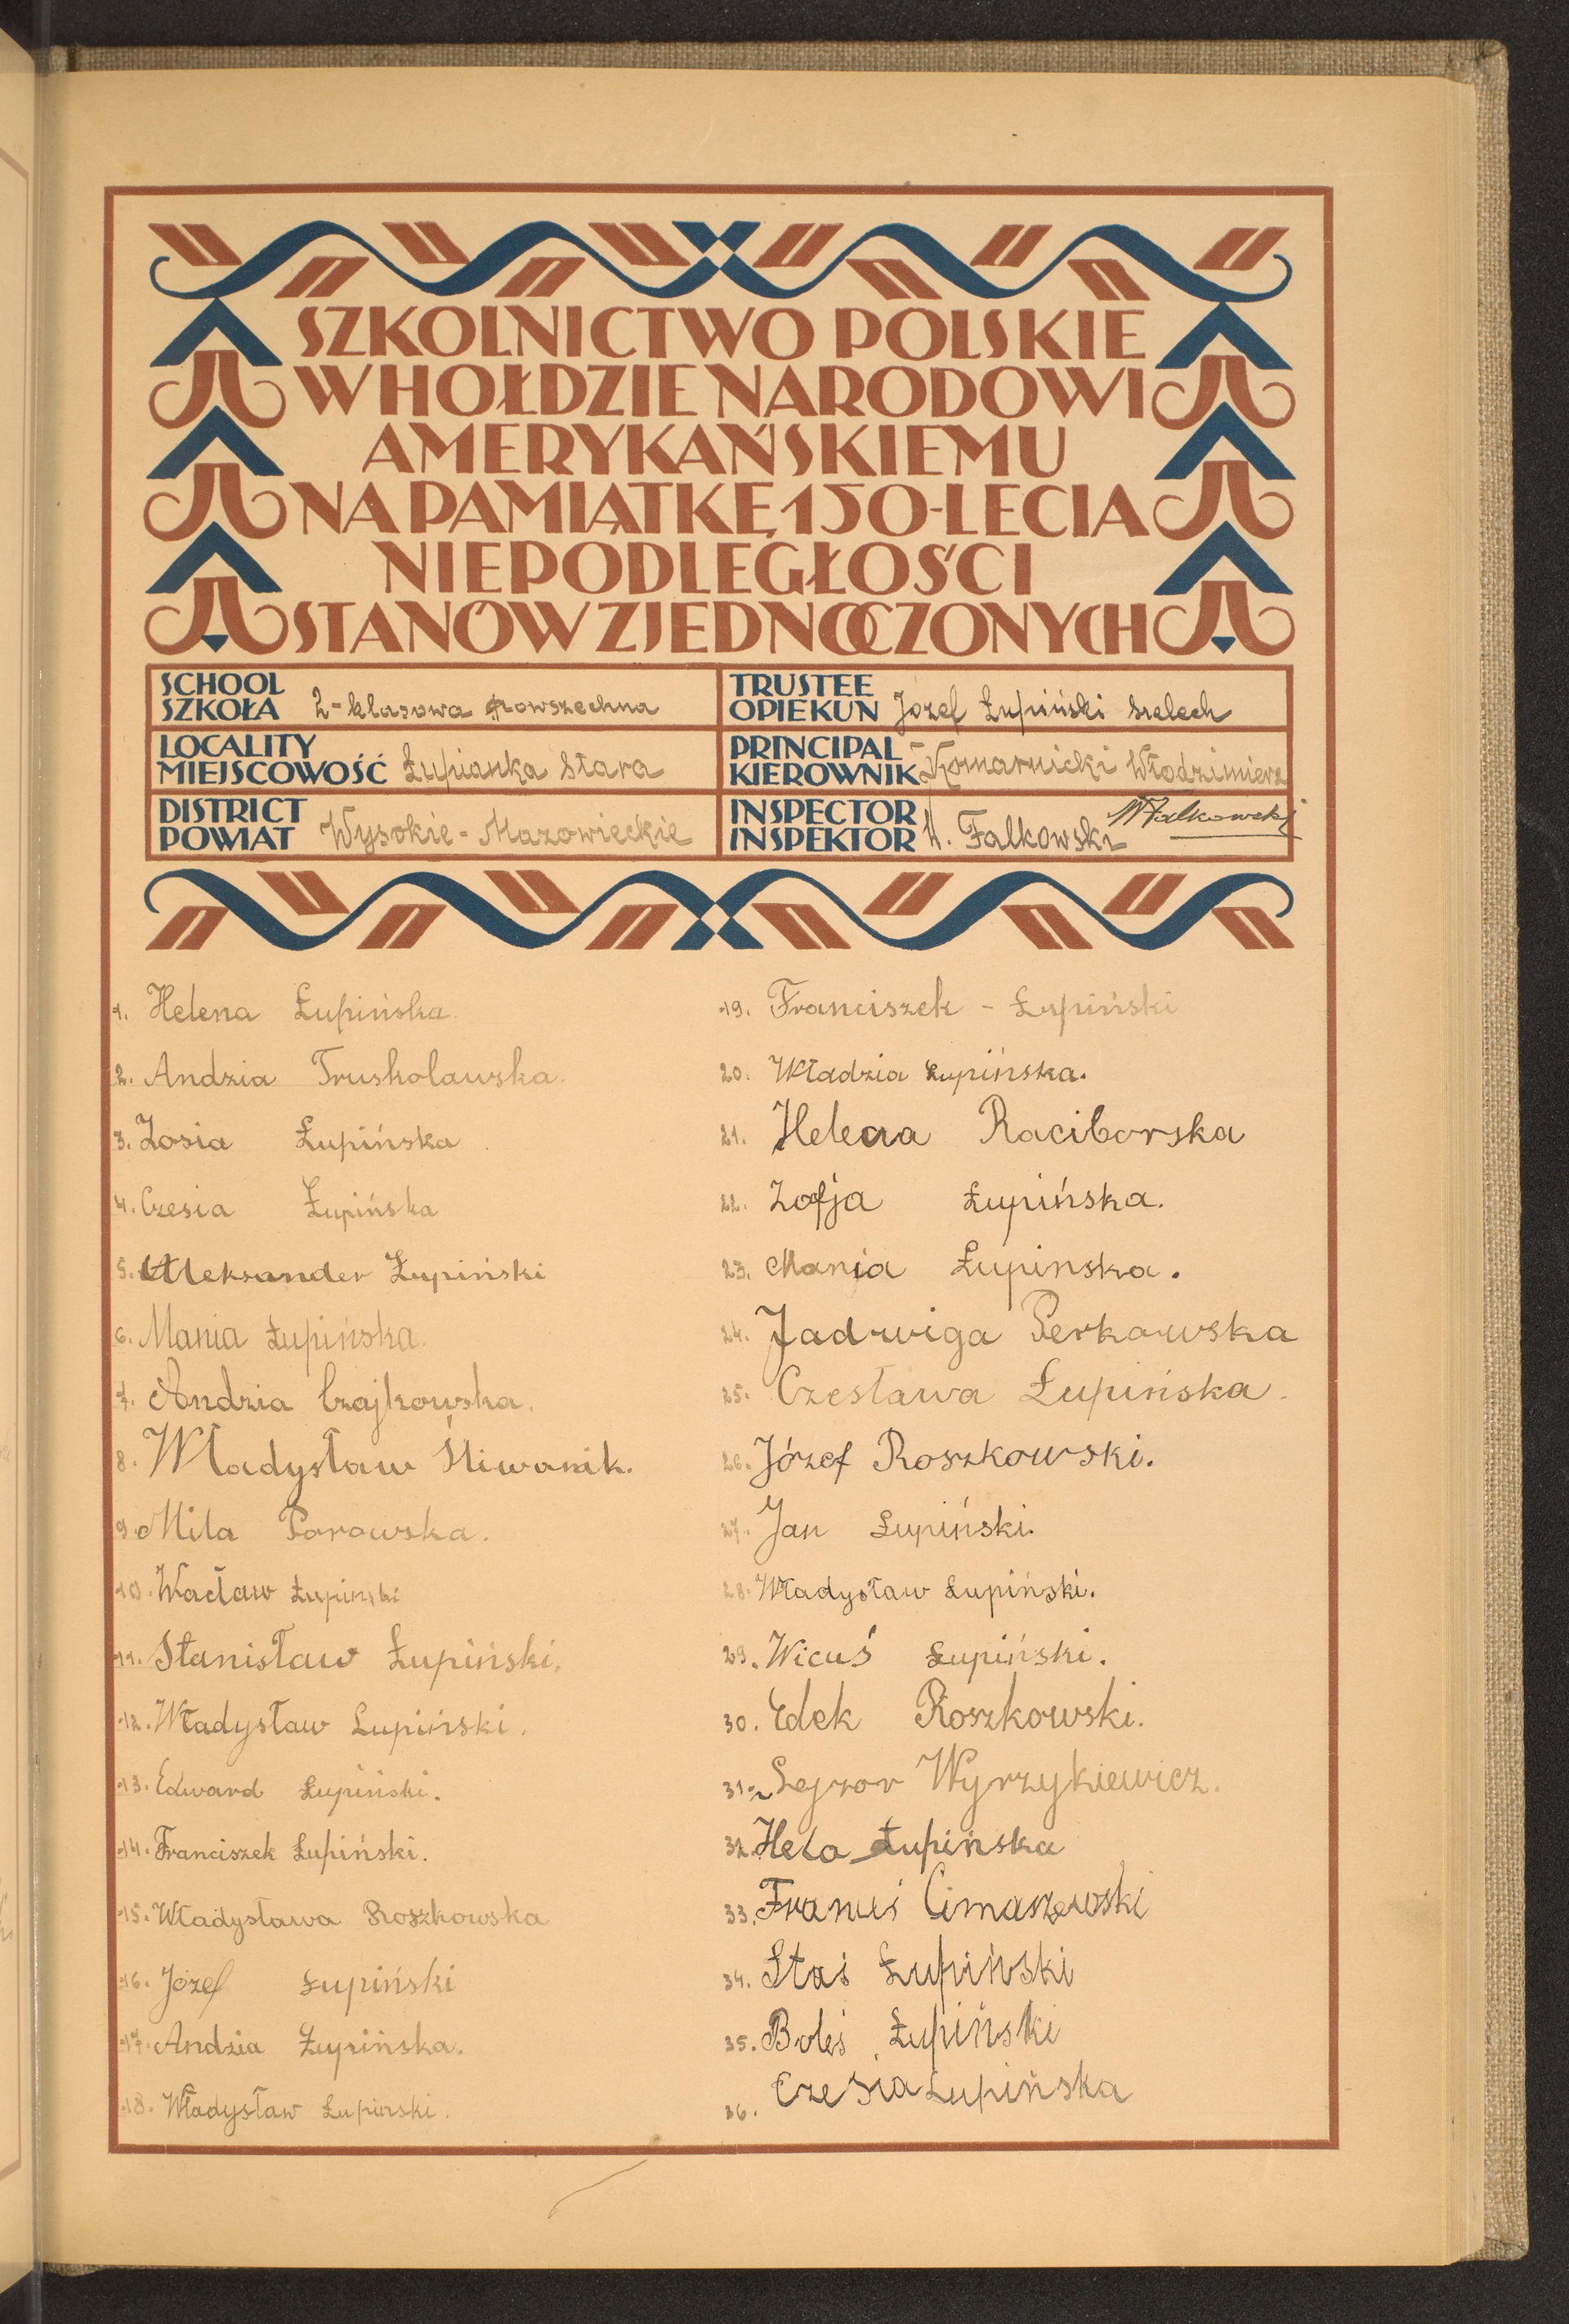 SZKOLNICTWO POLSKIE
W HOŁDZIE NARODOWI
AMERYKAŃSKIEMU
NA PAMIĄTKĘ 150-LECIA
NIEPODLEGŁOŚCI
STANÓW ZJEDNOCZONYCH
SCHOOL
SZKOŁA 2-klasowa powszechna
TRUSTEE
OPIEKUN Józef Łupiński Szelech
LOCALITY
MIEJSCOWOŚĆ Łupianka Stara
PRINCIPAL
KIEROWNIK Komarnicki Włodzimierz
DISTRICT
POWIAT Wysokie-Mazowieckie
INSPECTOR
INSPEKTOR W. Falkowski WFalkowski
1. Helena Łupińska.
2. Andzia Truskolawska.
3. Zosia Łupińska
4. Czesia Łupińska
5. Aleksander Łupiński
6. Mania Łupińska.
7. Andzia Czajkowska.
8. Władysław Śliwonik.
9. Mila Porowska.
10. Wacław Łupiński
11. Stanisław Łupiński.
12. Władysław Łupiński.
13. Edward Łupiński.
14. Franciszek Łupiński.
15. Władysława Roszkowska
16. Józef Łupiński
17. Andzia Łupińska.
18. Władysław Łupiński.
19. Franciszek - Łupiński
20. Władzia Łupińska.
21. Helena Raciborska
22. Zofja Łupińska.
23. Mania Łupinska.
24. Jadwiga Perkowska
25. Czesława Łupińska.
26. Józef Roszkowski.
27. Jan Łupiński.
28. Władysław Łupiński.
29. Wicuś Łupiński.
30. Edek Roszkowski.
31. Lejzor Wyrzykiewicz.
32. Hela Łupińska
33. Franuś Cimaszewski
34. Staś Łupiński
35. Boleś Łupiński
36. Czesia Łupińska